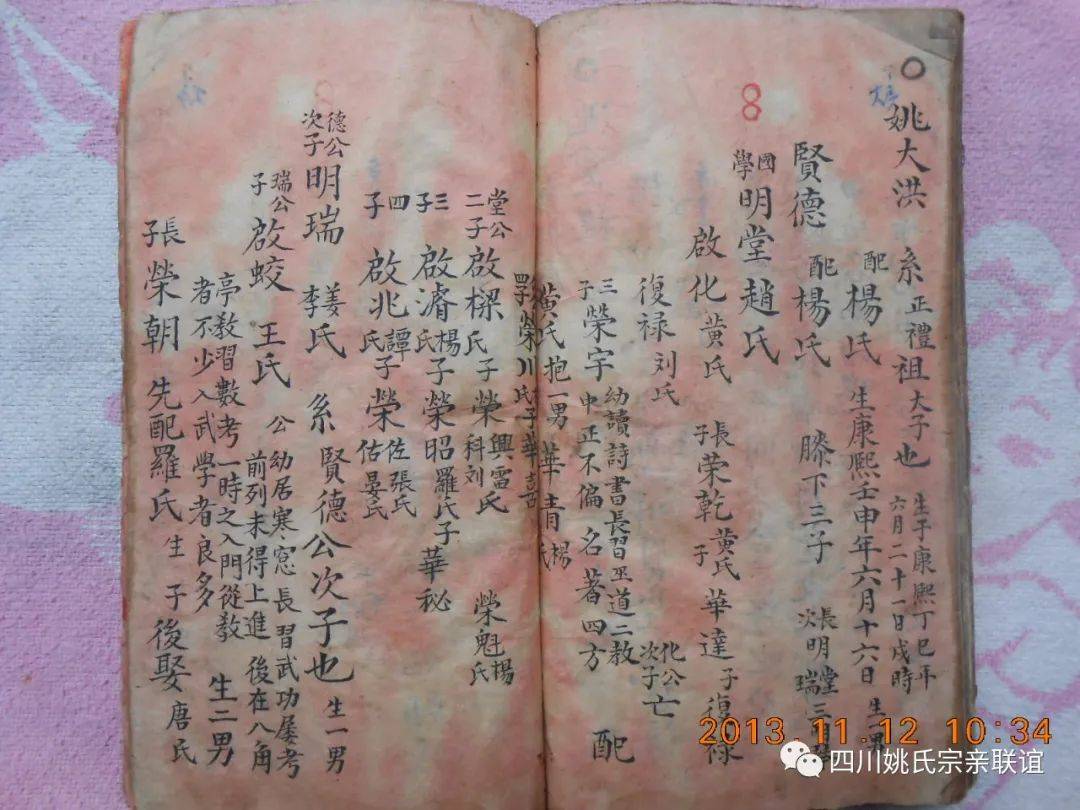 姚大洪 系正禮祖大子也 生于康熙丁巳年六月二十一日戌時
配楊氏 生康熙壬申年六月十六日 生一男
賢德 配楊氏 膝下三子 長明堂 次明瑞 三明
8
國學明堂 趙氏
啟化 黃氏 長子荣乾 黃氏 子華達 子復條
復禄 刘氏 化公次子亡
三子榮宇 幼讀詩書長習巫道二教 申正不偏 名著四方 配
黃氏 抱一男 華青 楊氏
四子榮川 氏 子華喜
堂公二子啟樑 氏 子榮興 雷氏 榮科 刘氏 榮魁 楊氏
三子啟濬 楊氏 子榮昭 羅氏 子華秘
四子啟兆 譚氏 子榮佐 張氏 榮佑 晏氏
8
德公次子明瑞 姜氏 李氏 系賢德公次子也 生一男
瑞公子啟蛟 王氏 公幼居寒窓長習武功屡考
前列未得上進 後在八角
亭教習數考一時之入門從教 生二男
者不少入武學者良多
長子榮朝 先配羅氏 生子 後娶唐氏
2013.11.12 10:34
四川姚氏宗亲联谊